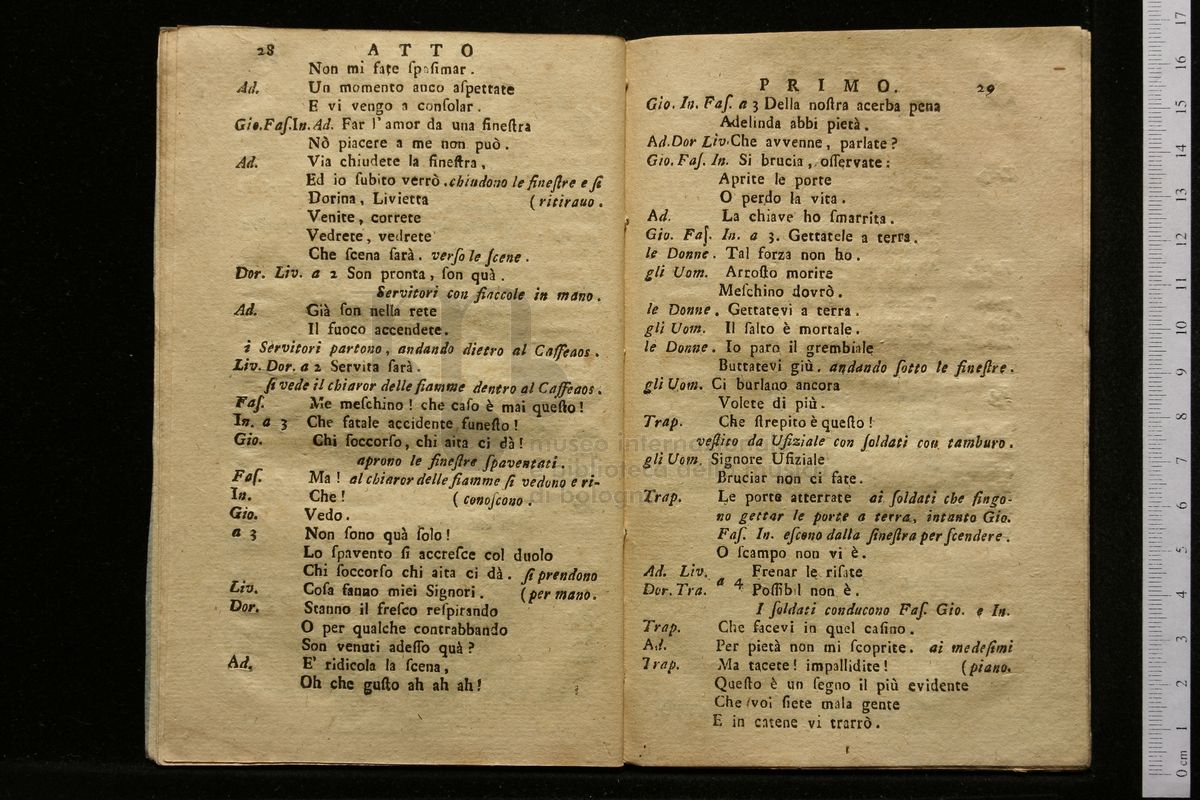 28 ATTO
Non mi fate ſpaſimar.
Ad. Un momento anco aſpettate
E vi vengo a conſolar.
Gio.Faſ.In.Ad. Far l'amor da una fineſtra
Nò piacere a me non può.
Ad. Via chiudete la fineſtra,
Ed io ſubito verrò. chiudono le fineſtre e ſi
Dorina, Livietta (ritirano.
Venite, correte
Vedrete, vedrete
Che ſcena ſarà. verſo le ſcene.
Dor. Liv. a 2 Son pronta, ſon quà.
Servitori con fiaccole in mano.
Ad. Già ſon nella rete
Il fuoco accendete.
i Servitori partono, andando dietro al Caffeaos.
Liv. Dor. a 2 Servita ſarà.
ſi vede il chiaror delle fiamme dentro al Caffeaos.
Faſ. Me meſchino! che caſo è mai queſto!
In. a 3 Che fatale accidente funeſto!
Gio. Chi ſoccorſo, chi aita ci dà!
aprono le fineſtre ſpaventati.
Faſ. Ma! al chiaror delle fiamme ſi vedono e ri-
In. Che! (conoſcono.
Gio. Vedo.
a 3 Non ſono quà ſolo!
Lo ſpavento ſi accreſce col duolo
Chi ſoccorſo chi aita ci dà. ſi prendono
Liv. Coſa fanno miei Signori. (per mano.
Dor. Stanno il freſco reſpirando
O per qualche contrabbando
Son venuti adeſſo quà?
Ad. E' ridicola la ſcena,
Oh che guſto ah ah ah!
PRIMO. 29
Gio. In. Faſ. a 3 Della noſtra acerba pena
Adelinda abbi pietà.
Ad.Dor Liv. Che avvenne, parlate?
Gio. Faſ. In. Si brucia, oſſervate:
Aprite le porte
O perdo la vita.
Ad. La chiave ho ſmarrita.
Gio. Faſ. In. a 3. Gettatele a terra.
le Donne. Tal forza non ho.
gli Uom. Arroſto morire
Meſchino dovrò.
le Donne. Gettatevi a terra.
gli Uom. Il ſalto è mortale.
le Donne. Io paro il grembiale
Buttatevi giù. andando ſotto le fineſtre.
gli Uom. Ci burlano ancora
Volete di più.
Trap. Che ſtrepito è queſto!
veſtito da Ufiziale con ſoldati con tamburo.
gli Uom. Signore Ufiziale
Bruciar non ci fate.
Trap. Le porte atterrate ai ſoldati che fingo-
no gettar le porte a terra, intanto Gio.
Faſ. In. eſcono dalla fineſtra per ſcendere.
O ſcampo non vi è.
Ad. Liv. a 4 Frenar le riſate
Dor. Tra. Poſſibil non è.
I ſoldati conducono Faſ. Gio. e In.
Trap. Che facevi in quel caſino.
Ad. Per pietà non mi ſcoprite. ai medeſimi
Trap. Ma tacete! impallidite! (piano.
Queſto è un ſegno il più evidente
Che voi ſiete mala gente
E in catene vi trarrò.
museo internazionale
e biblioteca della musica
di bologna
0 cm 1 2 3 4 5 6 7 8 9 10 11 12 13 14 15 16 17